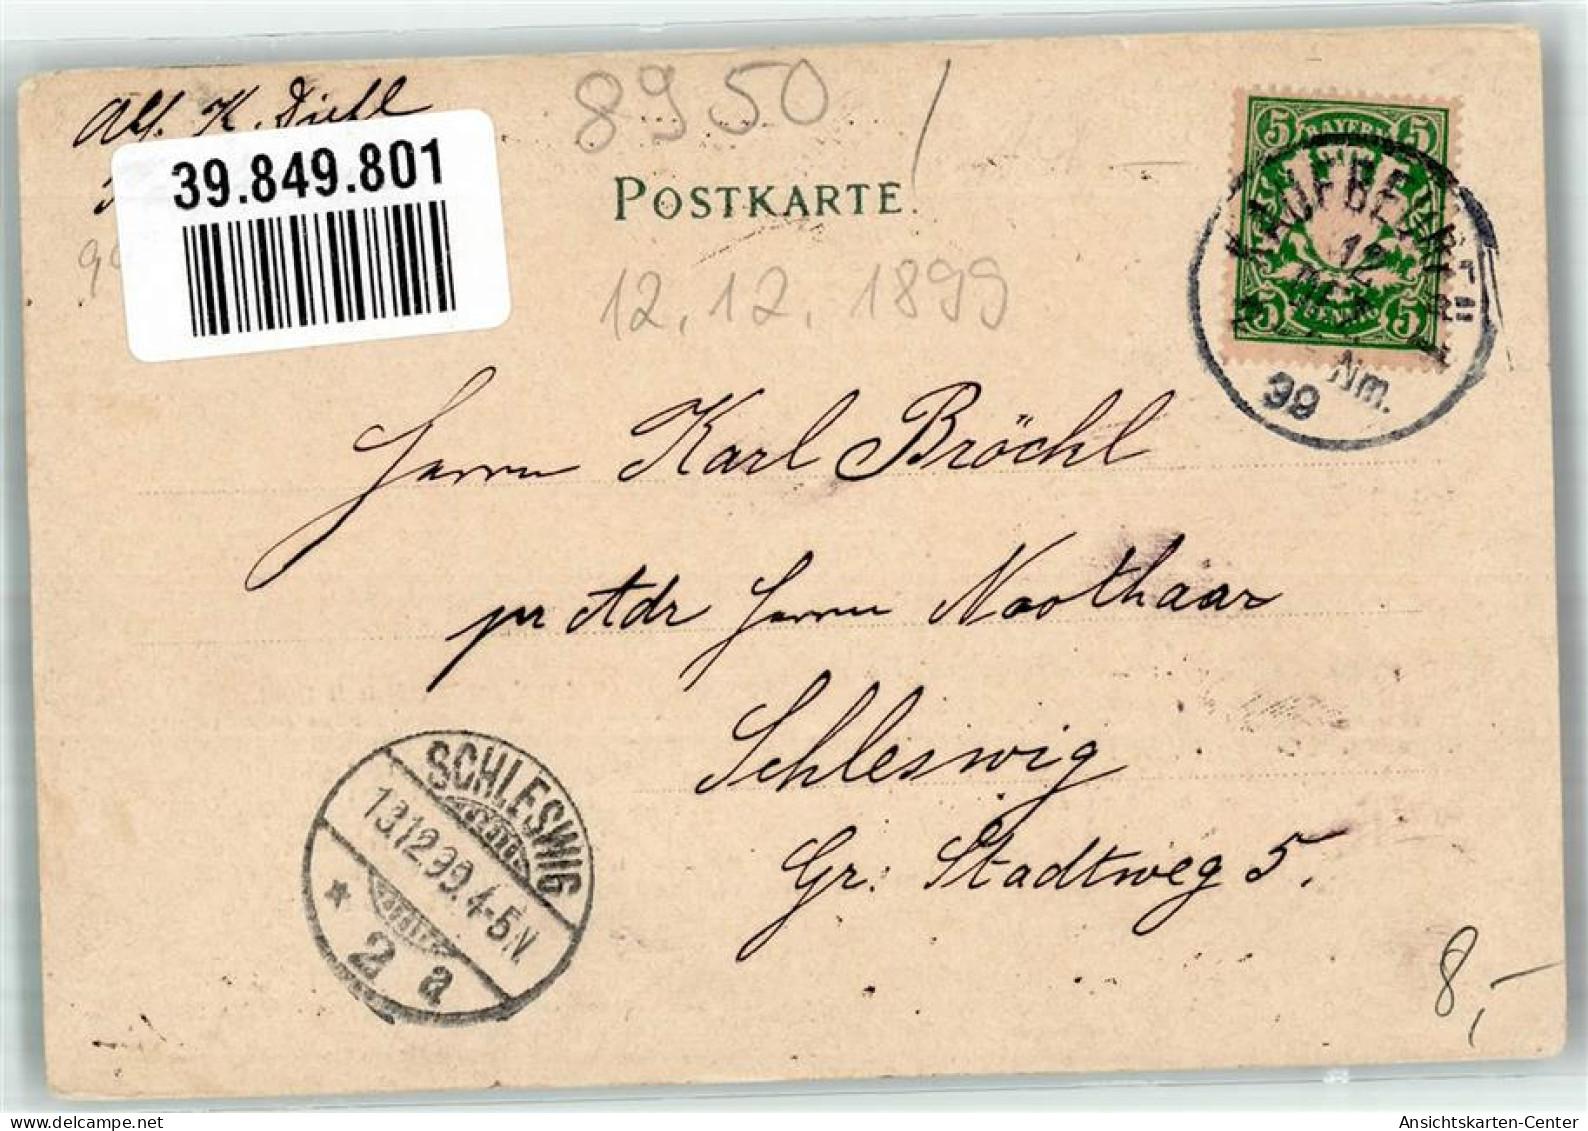 Abs. K. Diehl
39.849.801
8950
POSTKARTE
12.12.1899
5 BAYERN 5
5 PFENNIG 5
KAUFBEUREN
12
DEZ
Nm.
99
Herrn Karl Bröchl
pr Adr Herrn Noothaar
Schleswig
Gr. Stadtweg 5.
SCHLESWIG
13.12.99.4-5N.
* 2 a
8,-
Ansichtskarten-Center